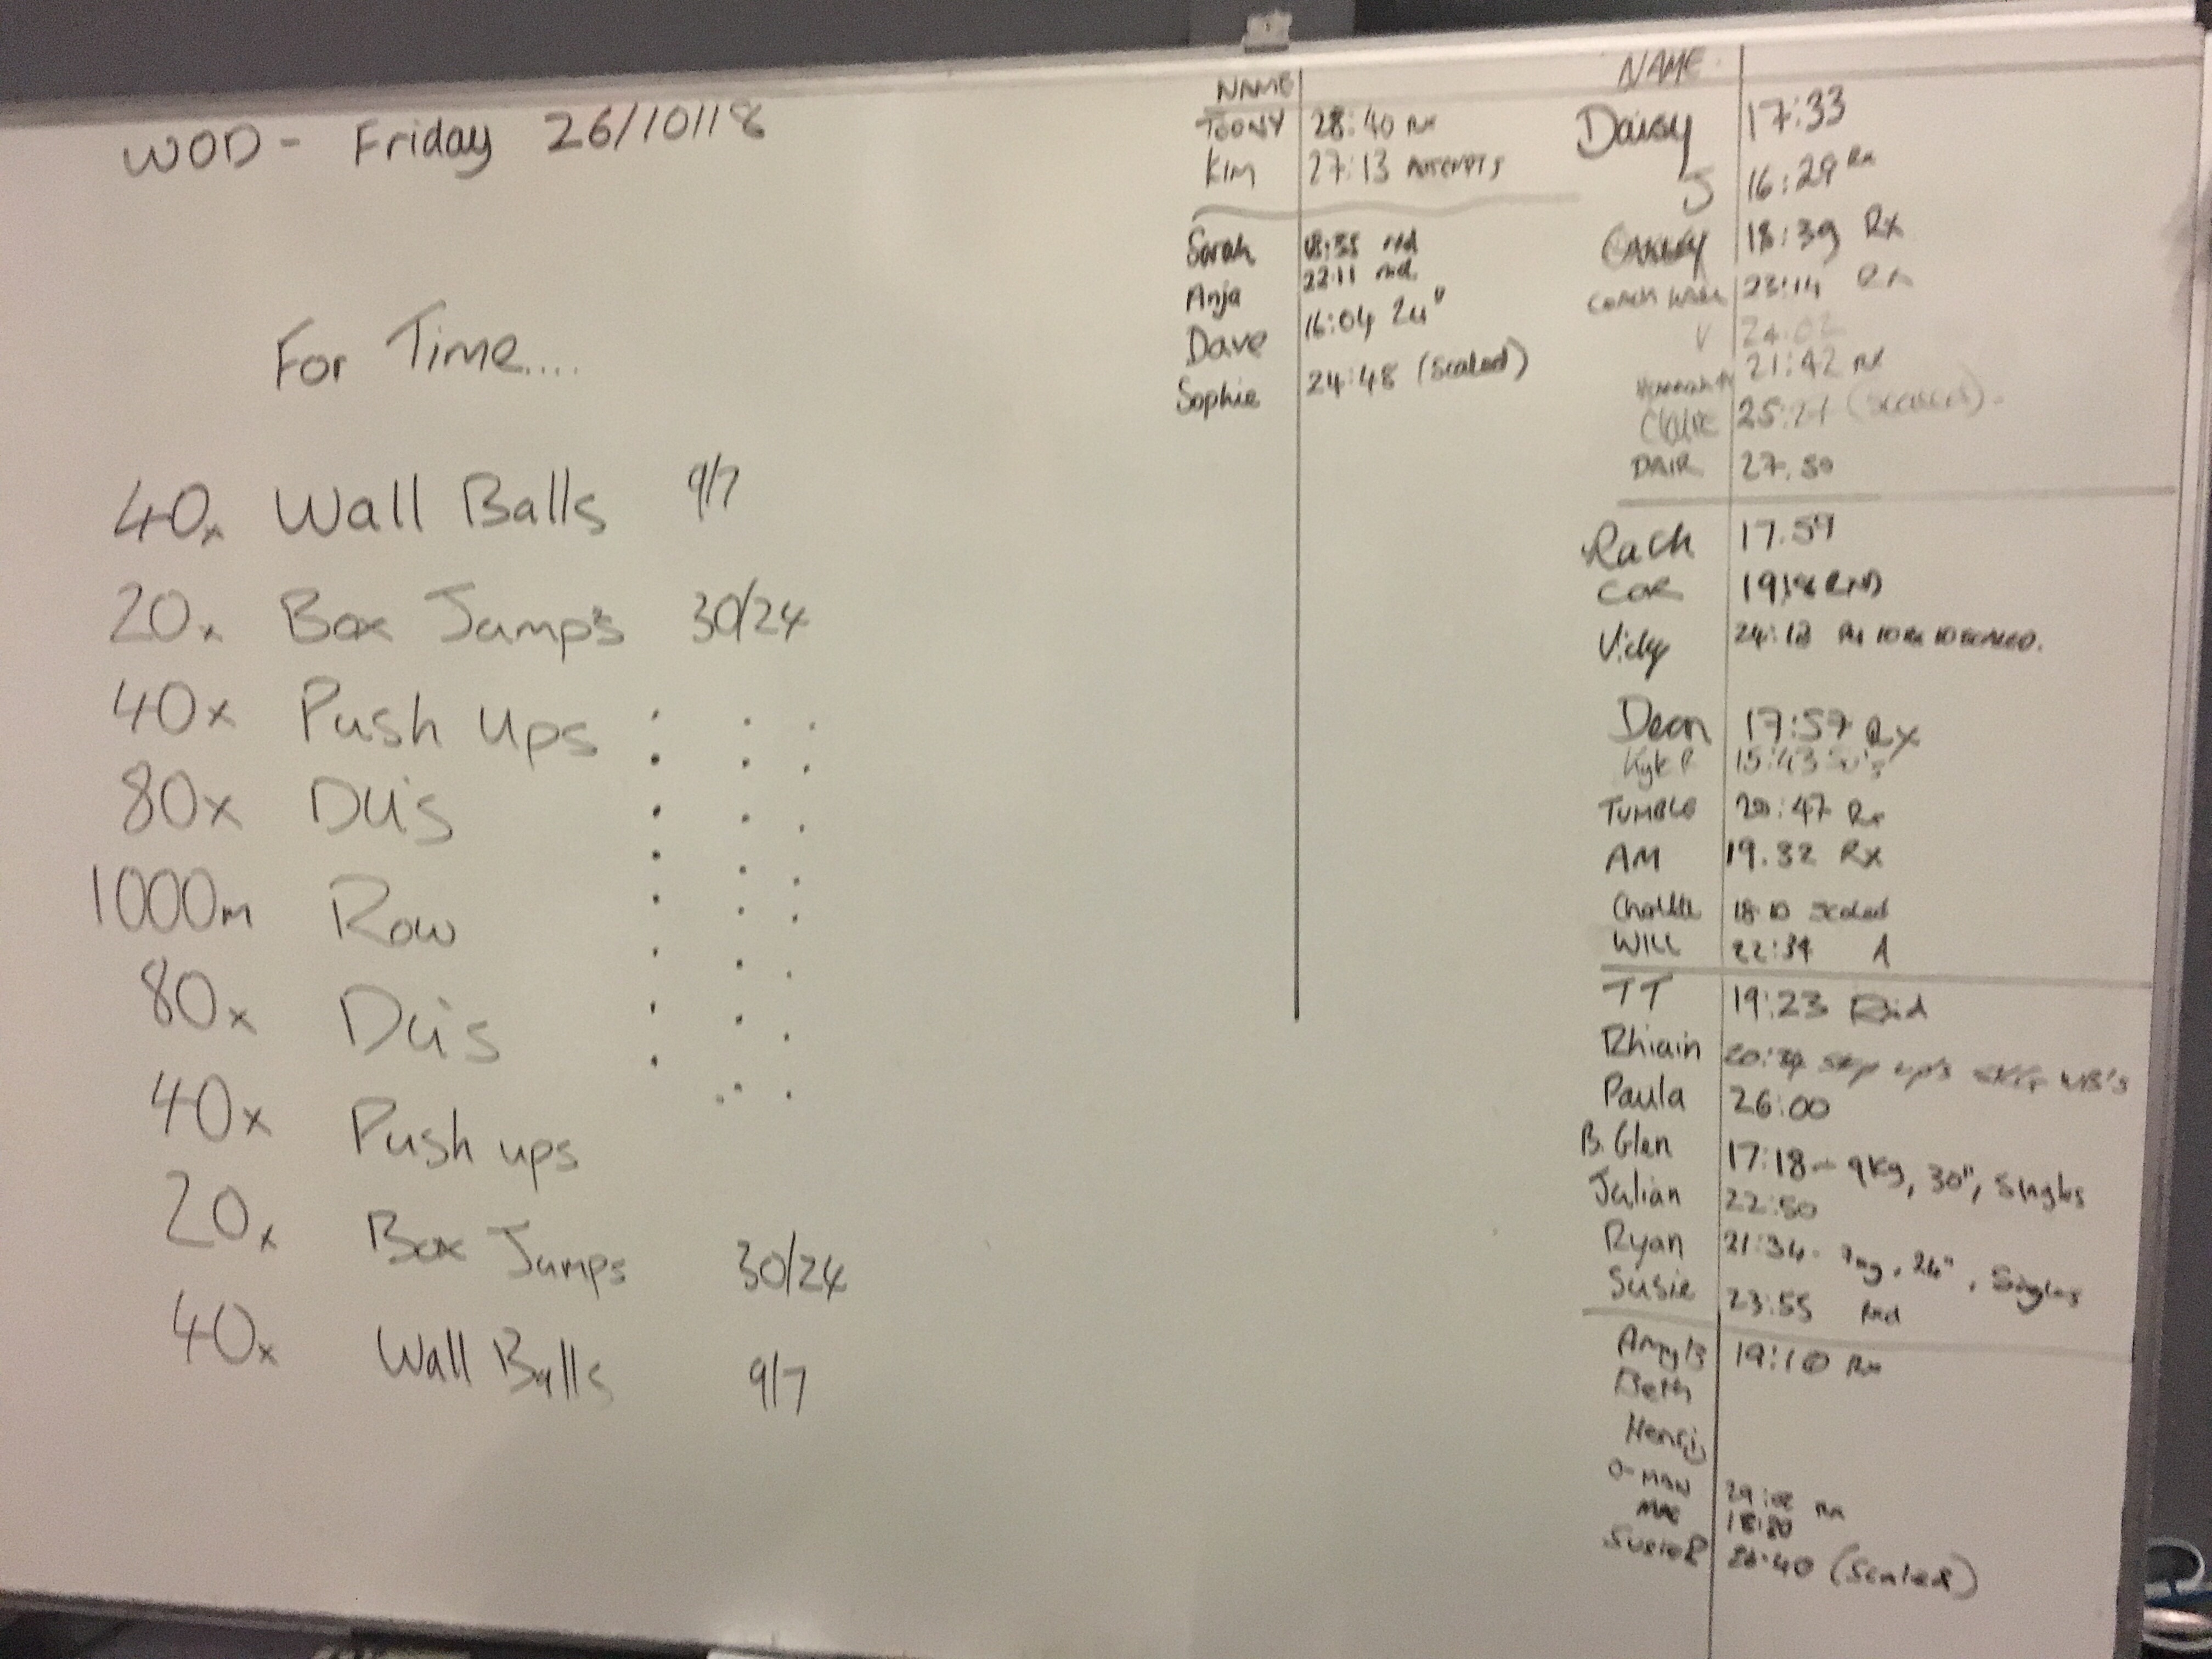 WOD - Friday 26/10/18
For Time....
40x Wall Balls 9/7
20x Box Jump's 30/24
40x Push Ups
80x DU's
1000m Row
80x DU's
40x Push ups
20x Box Jumps 30/24
40x Wall Balls 9/7
NAME
TOONY 28:40 Rx
KIM 27:13 ATTEMPTS
Sarah
Anja 22:11
Dave 16:04 24"
Sophie 24:48 (Scaled)
NAME
Daisy 17:33
J 16:29 Rx
OAKLEY 18:39 Rx
COACH 23:14 Rx
V 24:02
21:42 RX
Claire 25:21 (SCALED).
DAIR 27.50
Rach 17.59
COR
Vicky 24:12
Dean 17:57 Rx
Kyle R 15:43 SU's
TUMBLE 20:47 Rx
AM 19.32 Rx
18:10 Scaled
WILL 22:34 A
TT 19:23
Rhiain 20:34
Paula 26:00
B. Glen 17:18 - 9Kg, 30", Singles
Julian 22:50
Ryan 21:34 - 7kg, 24", Singles
Susie 23:55
Amy B 19:10 Rx
Beth
Henri
O-MAN Rx
MAC
Susie R 26:40 (Scaled)